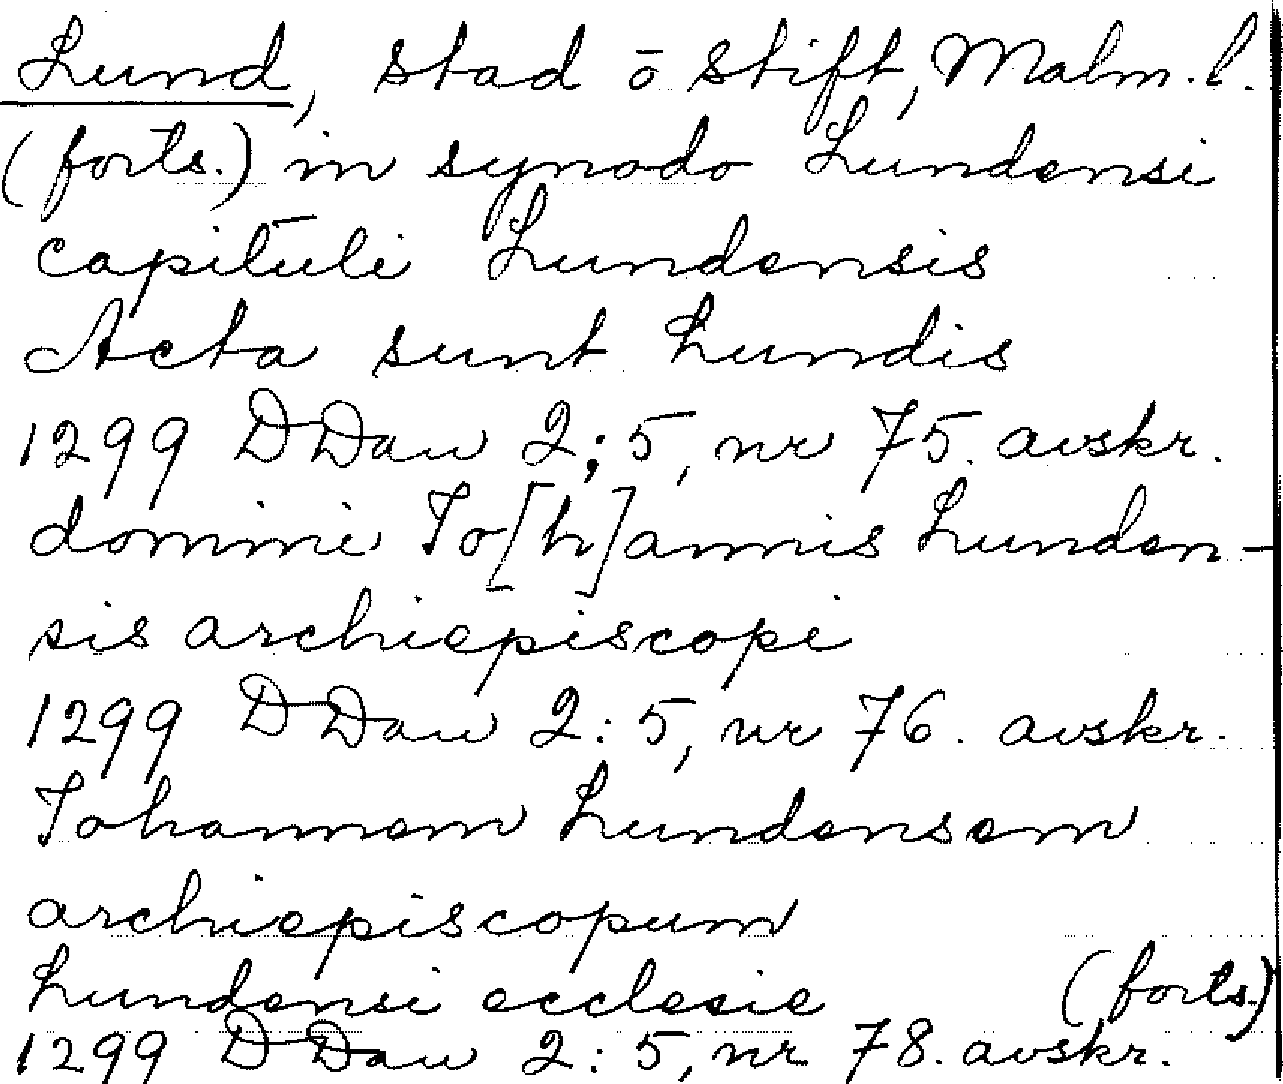 Lund, stad ō stift, Malm. l.
(forts.) in synodo Lundensi
capituli Lundensis
Acta sunt Lundis
1299 DDan 2:5, nr 75. avskr.
domini Io[h]annis Lunden-
sis archiepiscopi
1299 DDan 2:5, nr 76. avskr.
Iohannem Lundensem
archiepiscopum
Lundensi ecclesie (forts.)
1299 DDan 2:5, nr 78. avskr.